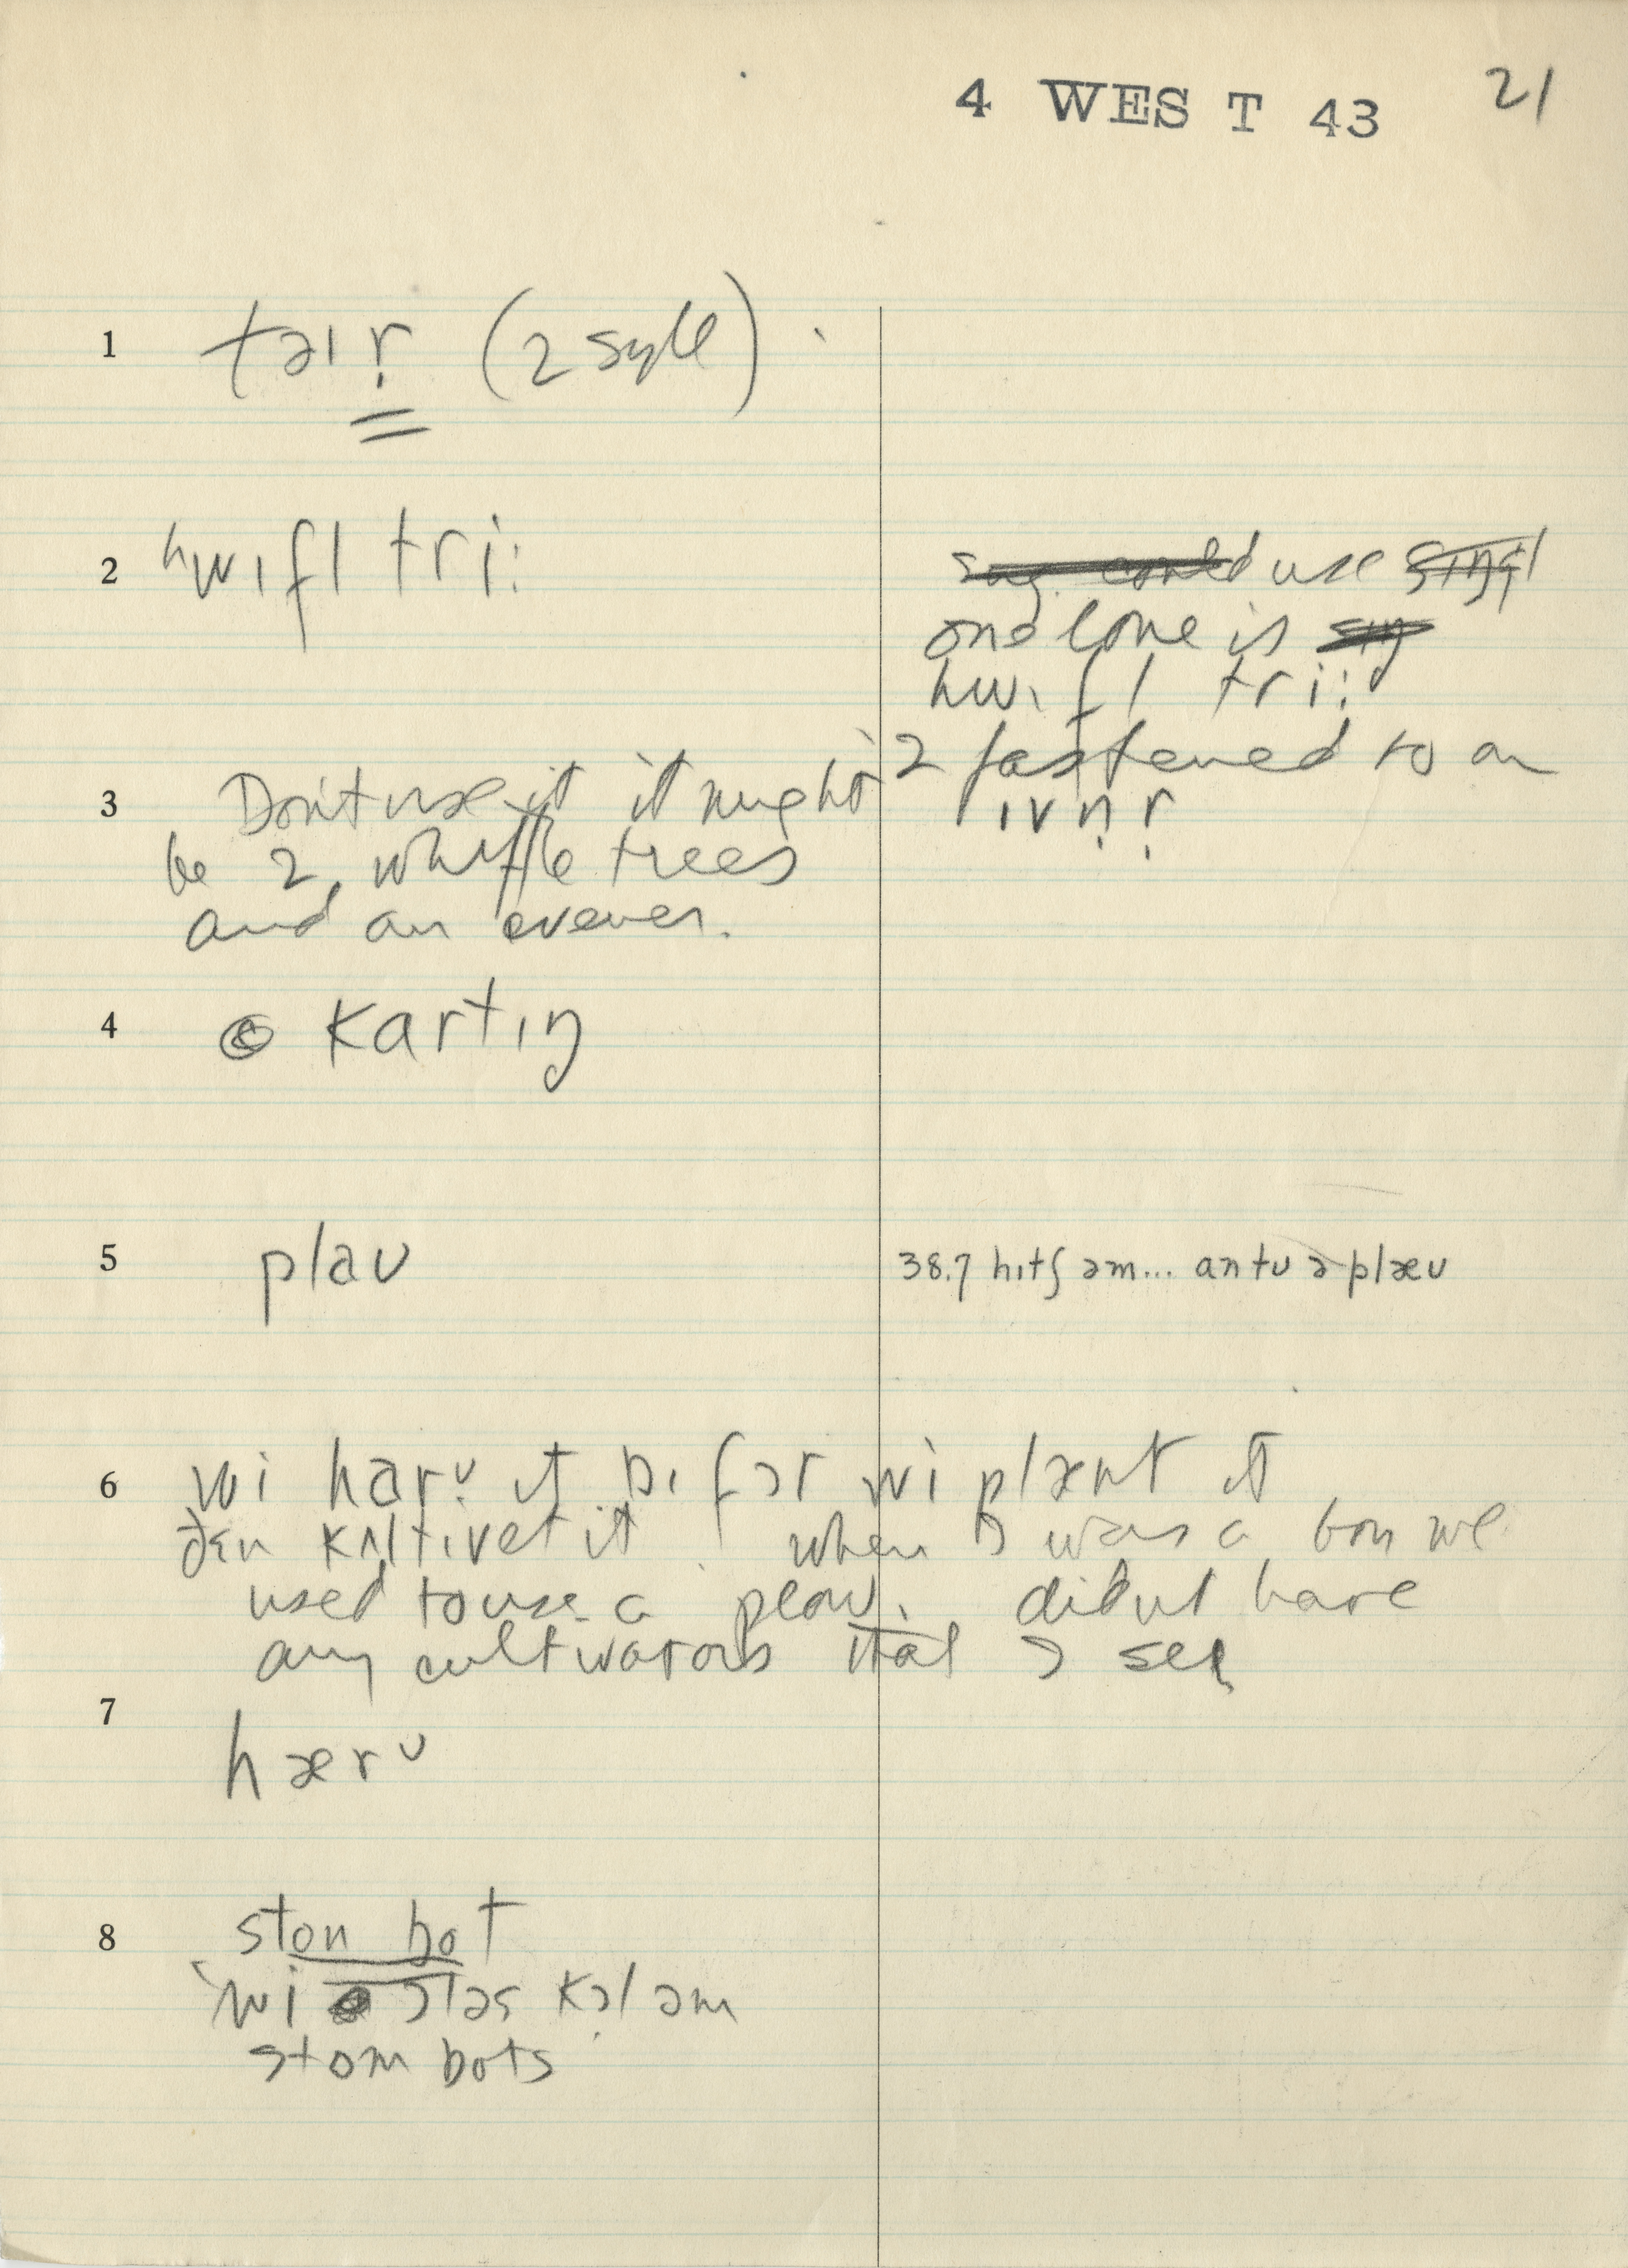 4 WEST 43 21
1 taɪr̩ (2 syll)
2 hwɪfl tri:
say could use singl
one lone is sing
hwɪfl tri:
2 fastened to an
ivn̩r̩
3 Don't use it it might
be 2 whiffle trees
and an evener.
4 kartɪŋ
5 plaʊ
38.7 hɪtʃ əm... ontʊ ə plæʊ
6 wi harʊ ɪt bɪfɔr wi plænt ɪt
ðɛn kʌltivet it when I was a boy we
used to use a plow. didn't have
any cultivators that I see
7 hærʊ
8 ston bot
wi ɔləs kɔl əm
stom bots